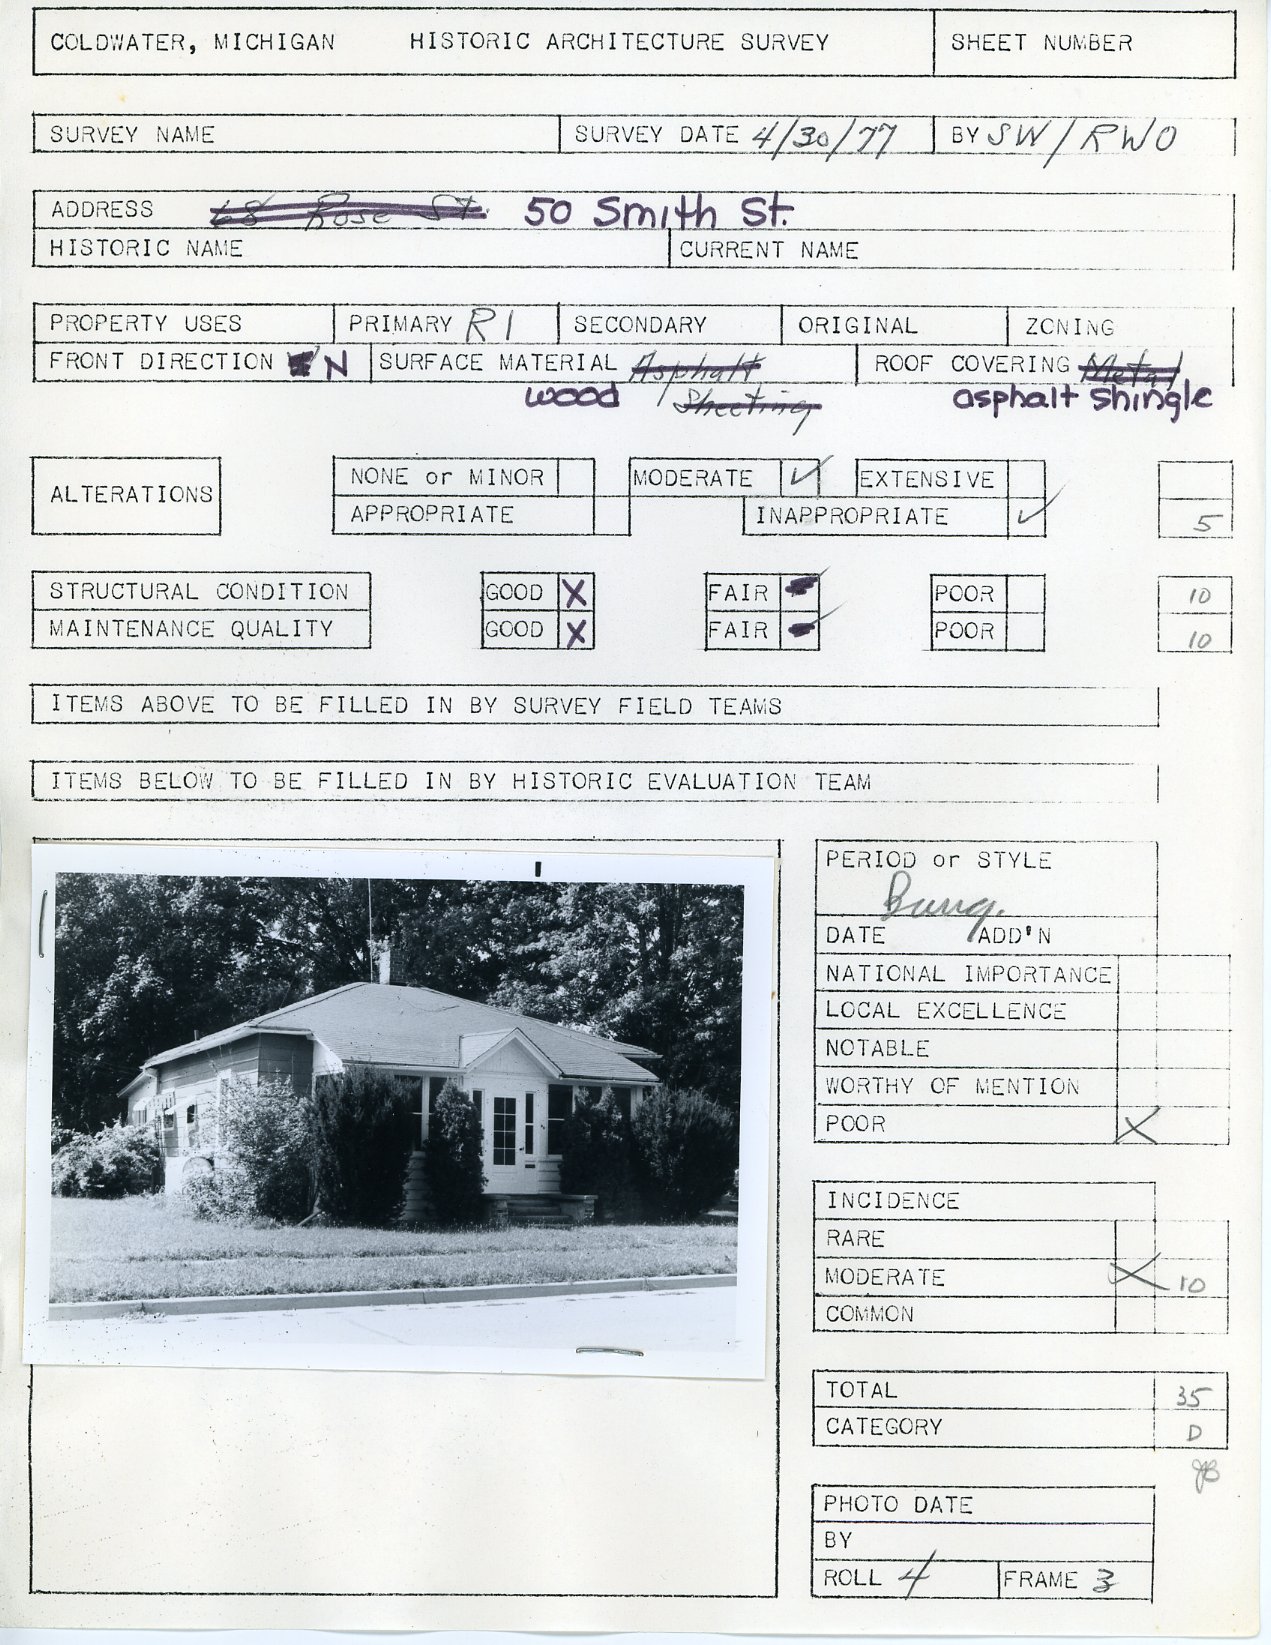 COLDWATER, MICHIGAN HISTORIC ARCHITECTURE SURVEY SHEET NUMBER
SURVEY NAME SURVEY DATE 4/30/77 BY SW/RWO
ADDRESS 68 Rose St. 50 Smith St.
HISTORIC NAME CURRENT NAME
PROPERTY USES PRIMARY R1 SECONDARY ORIGINAL ZONING
FRONT DIRECTION N SURFACE MATERIAL Asphalt ROOF COVERING Metal
wood Sheeting asphalt shingle
ALTERATIONS NONE or MINOR MODERATE ✓ EXTENSIVE
APPROPRIATE INAPPROPRIATE ✓ 5
STRUCTURAL CONDITION GOOD X FAIR POOR 10
MAINTENANCE QUALITY GOOD X FAIR POOR 10
ITEMS ABOVE TO BE FILLED IN BY SURVEY FIELD TEAMS
ITEMS BELOW TO BE FILLED IN BY HISTORIC EVALUATION TEAM
PERIOD or STYLE
Bung.
DATE ADD'N
NATIONAL IMPORTANCE
LOCAL EXCELLENCE
NOTABLE
WORTHY OF MENTION
POOR X
INCIDENCE
RARE
MODERATE X 10
COMMON
TOTAL 35
CATEGORY D
PHOTO DATE
BY
ROLL 4 FRAME 3